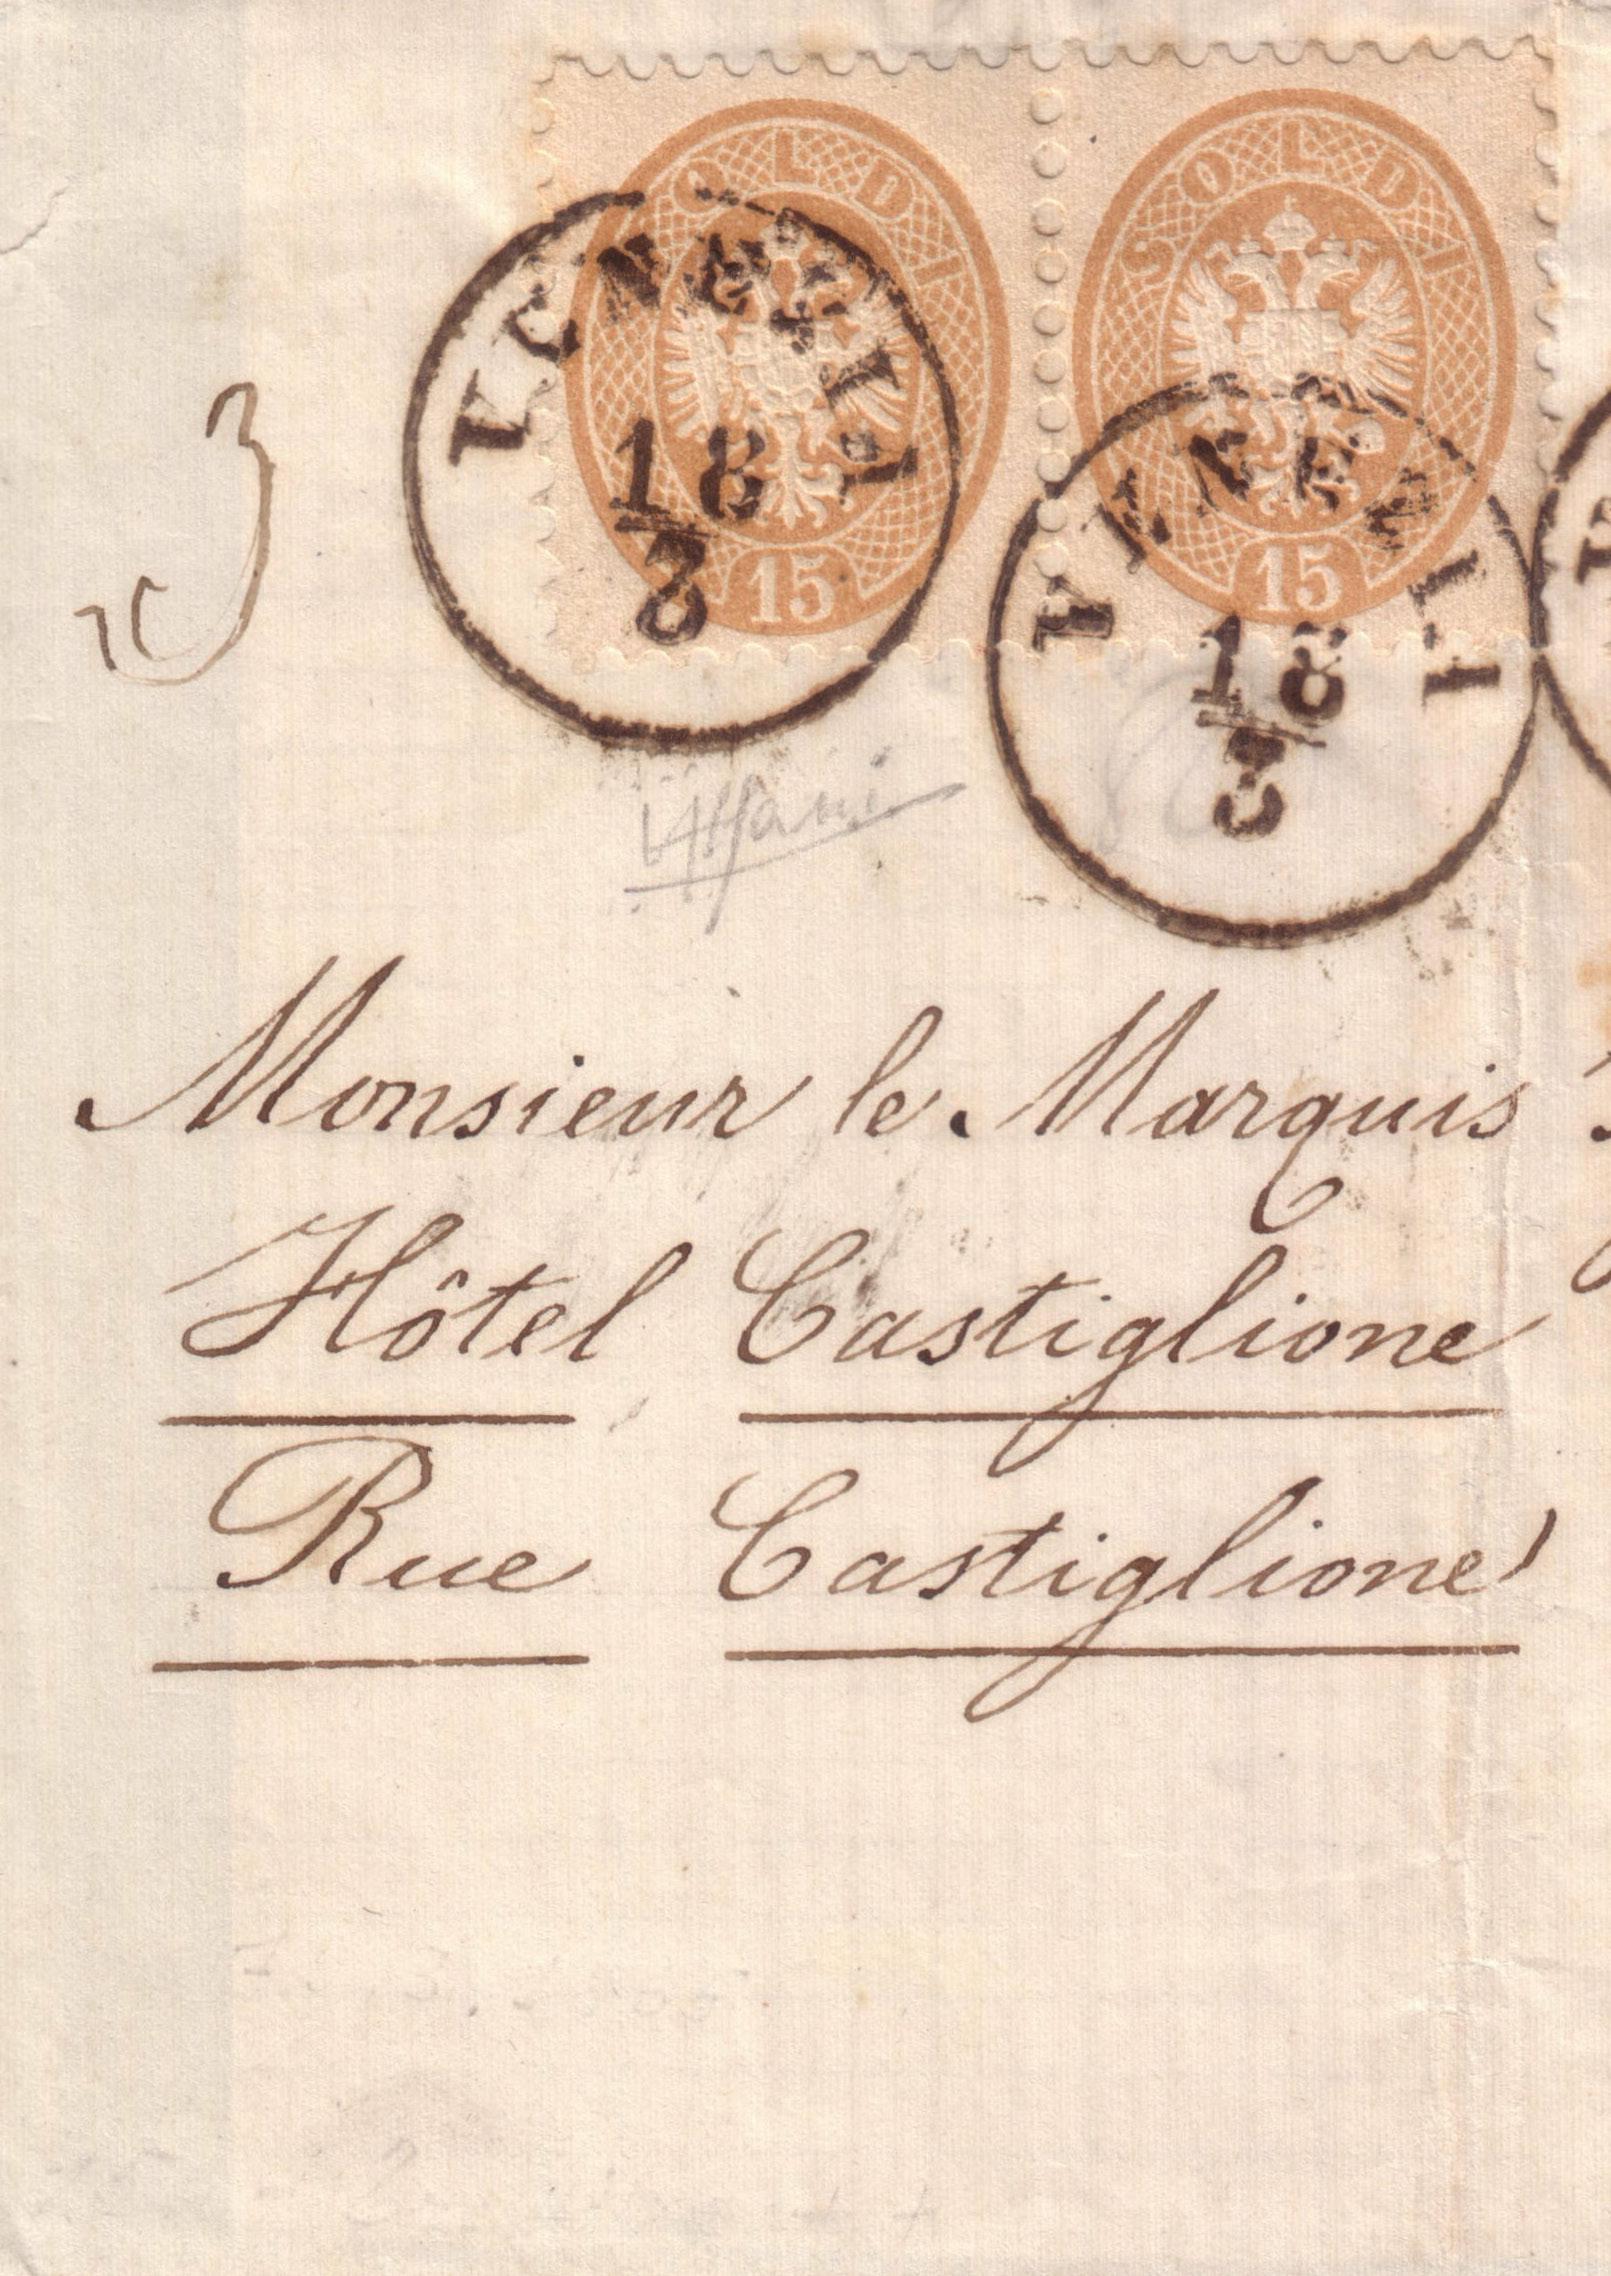 SOLDI SOLDI
15 15
VENEZIA
18
3
VENEZIA
18
3
Monsieur le Marquis
Hôtel Castiglione
Rue Castiglione